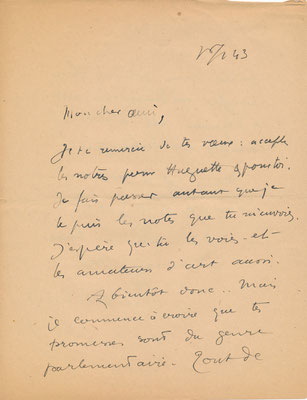 43
Mon cher ami,
Je te remercie de tes vœux : accepte
les nôtres pour Huguette & pour toi.
Je fais passer autant que je
le puis les notes que tu m'envoies.
J'espère que tu les vois - et
les amateurs d'art aussi.
A bientôt donc. Mais
je commence à croire que tes
promesses sont du genre
parlementaire. Tout de